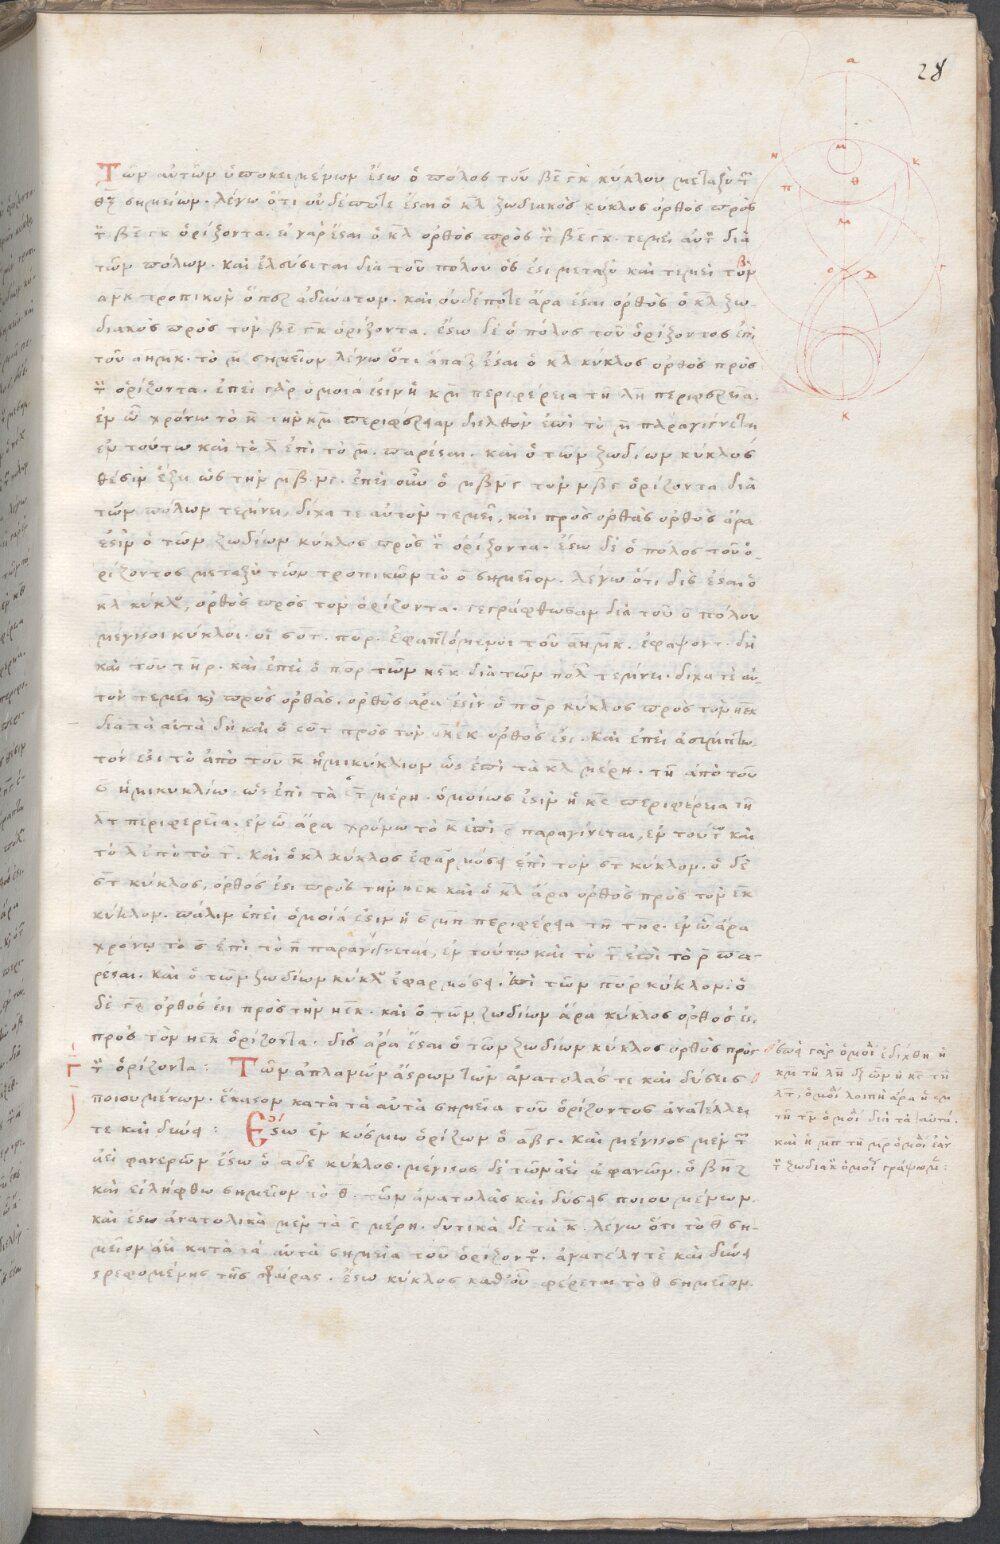 28
Τῶν αὐτῶν ὑποκειμένων ἔστω ὁ πόλος τοῦ βε γκ κύκλου μεταξὺ τ
θζ σημείων· λέγω ὅτι οὐδέποτε ἔσται ὁ κλ ζωδιακὸς κύκλος ὀρθὸς πρὸς
τ βε γκ ὁρίζοντα. εἰ γὰρ ἔσται ὁ κλ ὀρθὸς πρὸς τ βε γκ. τεμεῖ αὐτ διὰ
τῶν πόλων. καὶ ἐλεύσεται διὰ τοῦ πόλου ὅς ἐστι μεταξὺ καὶ τεμεῖ τὸν
τροπικὸν ὅπερ ἀδύνατον. καὶ οὐδέποτε ἄρα ἔσται ὀρθὸς ὁ κλ ζω-
διακὸς πρὸς τὸν βε γκ ὁρίζοντα. ἔστω δὲ ὁ πόλος τοῦ ὁρίζοντος ἐπὶ
τοῦ ανμκ. τὸ μ σημεῖον λέγω ὅτι ἅπαξ ἔσται ὁ κλ κύκλος ὀρθὸς πρὸς
τ ὁρίζοντα. ἐπεὶ γὰρ ὁμοιά ἐστιν ἡ κμ περιφέρεια τῇ λη περιφερεία.
ἐν ᾧ χρόνῳ τὸ κ τὴν κμ περιφέρειαν διελθὸν ἐπὶ τὸ μ παραγίνεται
ἐν τούτῳ καὶ τὸ λ ἐπὶ τὸ η. παρέσται. καὶ ὁ τῶν ζωδίων κύκλος
θέσιν ἕξει ὡς τὴν ἐπεὶ οὖν ὁ τὸν ὁρίζοντα διὰ
τῶν πόλων τέμνει, δίχα τε αὐτὸν τεμεῖ, καὶ πρὸς ὀρθὰς ὀρθὸς ἄρα
ἐστὶν ὁ τῶν ζωδίων κύκλος πρὸς τ ὁρίζοντα. ἔστω δὲ ὁ πόλος τοῦ ὁ-
ρίζοντος μεταξὺ τῶν τροπικῶν τὸ ο σημεῖον. λέγω ὅτι δὶς ἔσται ὁ
κλ κύκλος, ὀρθὸς πρὸς τὸν ὁρίζοντα. γεγράφθωσαν διὰ τοῦ ο πόλου
μέγιστοι κύκλοι. οἱ σοτ. πορ. ἐφαπτόμενοι τοῦ ανμκ. ἐφάψοντ. δὴ
καὶ τοῦ τηρ. καὶ ἐπεὶ ὁ πορ τῶν νεκ διὰ τῶν πόλ τέμνει. δίχα τε αὐ-
τὸν τεμεῖ καὶ πρὸς ὀρθὰς. ὀρθὸς ἄρα ἐστὶν ὁ πορ κύκλος πρὸς τὸν νεκ
διὰ τὰ αὐτὰ δὴ καὶ ὁ σοτ πρὸς τὸν νεκ ὀρθὸς ἐστι. καὶ ἐπεὶ ἀσύμπτω-
τόν ἐστι τὸ ἀπὸ τοῦ κ ἡμικυκλιον ὡς ἐπὶ τὰ κλ μέρη. τῷ ἀπὸ τοῦ
σ ἡμικυκλίω. ὡς ἐπὶ τὰ στ μέρη. ὁμοίως ἐστὶν ἡ κσ περιφέρεια τῇ
λτ περιφερεία. ἐν ᾧ ἄρα χρόνω τὸ κ ἐπὶ σ παραγίνεται, ἐν τούτ καὶ
τὸ λ ἐπὶ τὸ τ. καὶ ὁ κλ κύκλος ἐφαρμόσει ἐπὶ τὸν στ κύκλον. ὁ δὲ
στ κύκλος, ὀρθός ἐστι πρὸς τὴν νεκ καὶ ὁ κλ ἄρα ὀρθὸς πρὸς τὸν εκ
κύκλον. πάλιν ἐπεὶ ὁμοιά ἐστιν ἡ σμπ περιφέρεια τῇ τηρ. ἐν ᾧ ἄρα
χρόνῳ τὸ σ ἐπὶ τὸ π παραγίνεται, ἐν τούτω καὶ τὸ τ ἐπὶ τὸ ρ πα-
ρέσται. καὶ ὁ τῶν ζωδίων κύκλος ἐφαρμόσει. ἐπὶ τῶν πορ κύκλον. ὁ
δὲ ὀρθός ἐστι πρὸς τὴν νεκ. καὶ ὁ τῶν ζωδίων ἄρα κύκλος ὀρθός ἐστι
πρὸς τὸν νεκ ὁρίζοντα. δὶς ἄρα ἔσται ὁ τῶν ζωδίων κύκλος ὀρθὸς πρὸς
τ ὁρίζοντα: Τῶν ἀπλανῶν ἄστρων τῶν ἀνατολάς τε καὶ δύσεις
ποιουμένων. ἕκαστον κατὰ τὰ αὐτὰ σημεῖα τοῦ ὁρίζοντος ἀνατέλλει
τε καὶ δύνει: Ἔστω ἐν κόσμω ὁρίζων ὁ αβγ. καὶ μέγιστος μὲν τ
ἀεὶ φανερῶν ἔστω ὁ αδε κύκλος. μέγιστος δὲ τῶν ἀεὶ ἀφανῶν. ὁ βηζ
καὶ εἰλήφθω σημεῖον τὸ θ. τῶν ἀνατολὰς καὶ δύσεις ποιουμένων.
καὶ ἔστω ἀνατολικὰ μὲν τὰ γ μέρη. δυτικὰ δὲ τὰ κ. λέγω ὅτι τὸ θ ση-
μεῖον ἀεὶ κατὰ τὰ αὐτὰ σημεῖα τοῦ ὁρίζοντ. ἀνατέλει τὲ καὶ δύνει
στρεφομένης τῆς σφαίρας. ἔστω κύκλος καθ' οὗ φέρεται τὸ θ σημεῖον.
γὰρ ὁμοί ἐδείχθη ἡ
κμ τῇ λη ὧν ἡ κσ τῇ
λτ, ὁμοί λοιπὴ ἄρα ἡ σμ
τῇ τη ὁμοί διὰ τὰ αὐτά.
καὶ ἡ μπ τῇ ηρ ὁμοί ἐὰν
τ ζωδιακ ὁμοί γράψωμ: